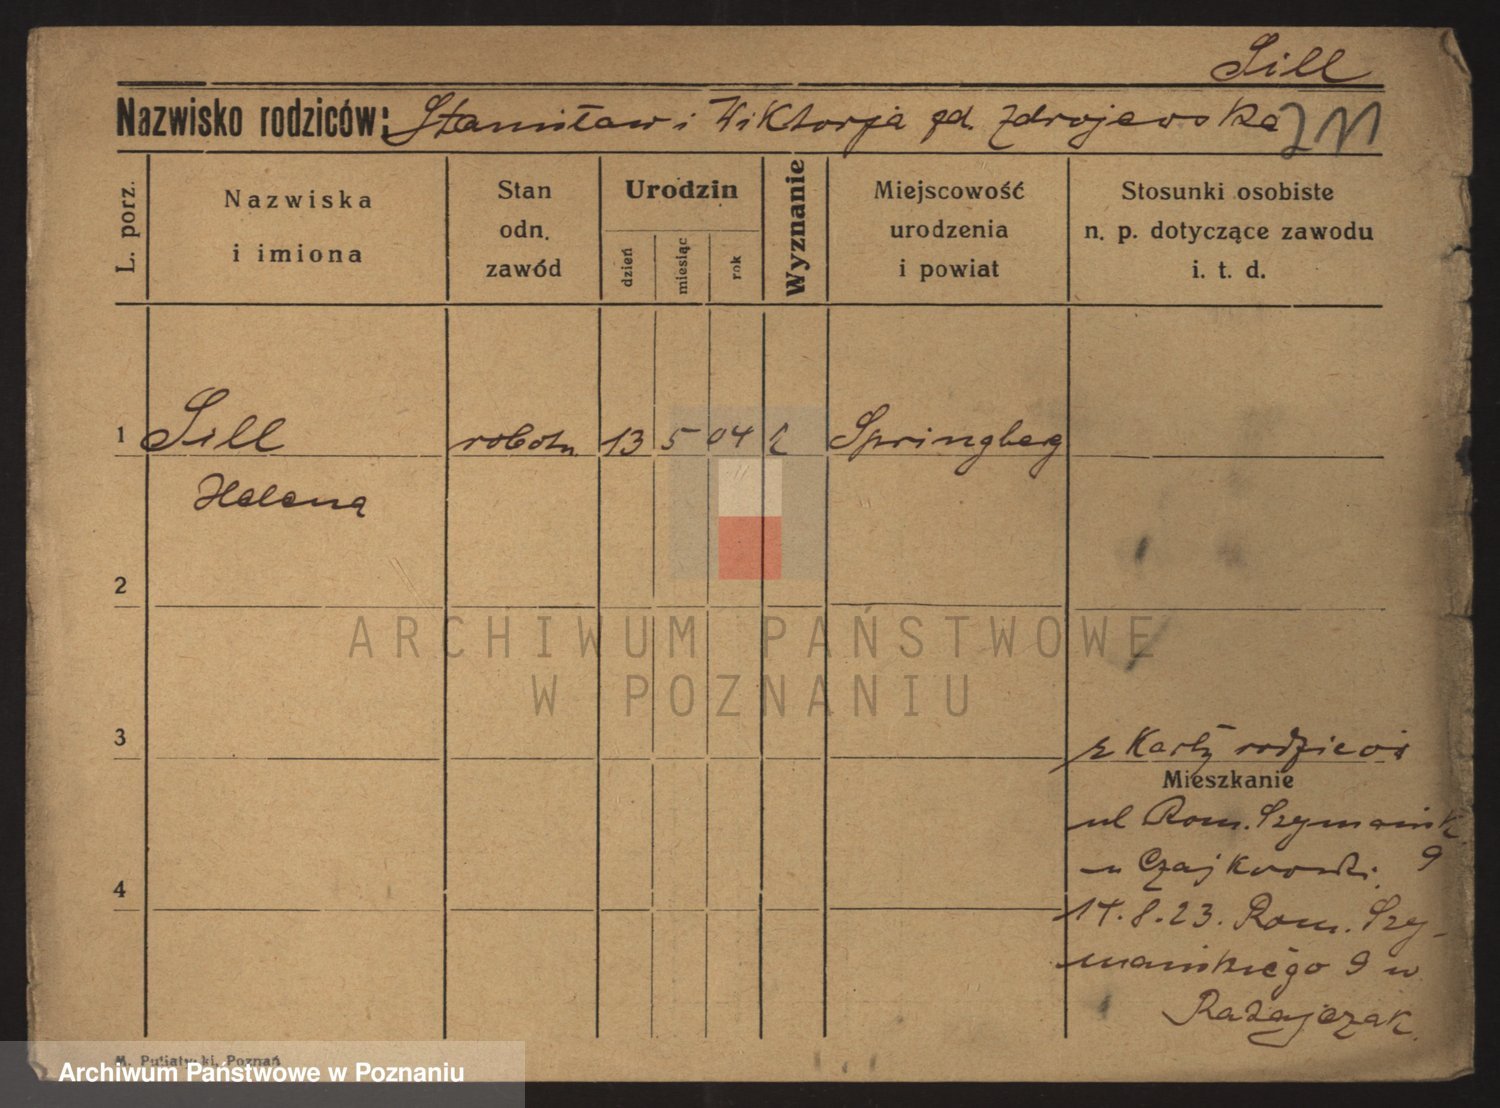 Sill
Nazwisko rodziców: Stanisław i Wiktorja gd. Zdrojewska 211
L. porz.
Nazwiska
i imiona
Stan
odn.
zawód
Urodzin
dzień
miesiąc
rok
Wyznanie
Miejscowość
urodzenia
i powiat
Stosunki osobiste
n. p. dotyczące zawodu
i. t. d.
1 Sill robotn. 13 5 04 Springberg
Helena
2
3
z Karty rodziców
Mieszkanie
ul Rom. Szymańsk.
u Czajkowski. 9
4
14.8.23. Rom. Szy-
mańskiego 9 u
Ratajczak.
M. Putiatycki, Poznań
ARCHIWUM PAŃSTWOWE
W POZNANIU
Archiwum Państwowe w Poznaniu